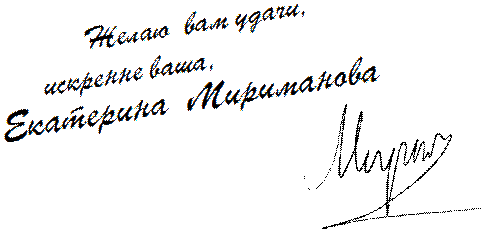 Желаю вам удачи,
искренне ваша,
Екатерина Мириманова